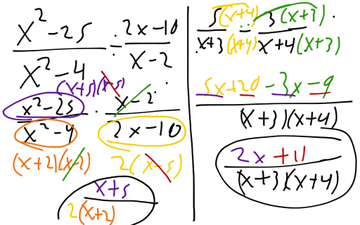 x²-25 / x²-4 ÷ 2x-10 / x-2
(x+5)(x-5)
x²-25 / x²-4 · x-2 / 2x-10
(x+2)(x-2) 2(x-5)
x+5 / 2(x+2)
5(x+4) / x+3(x+4) - 3(x+3) / x+4(x+3)
5x+20-3x-9 / (x+3)(x+4)
2x+11 / (x+3)(x+4)